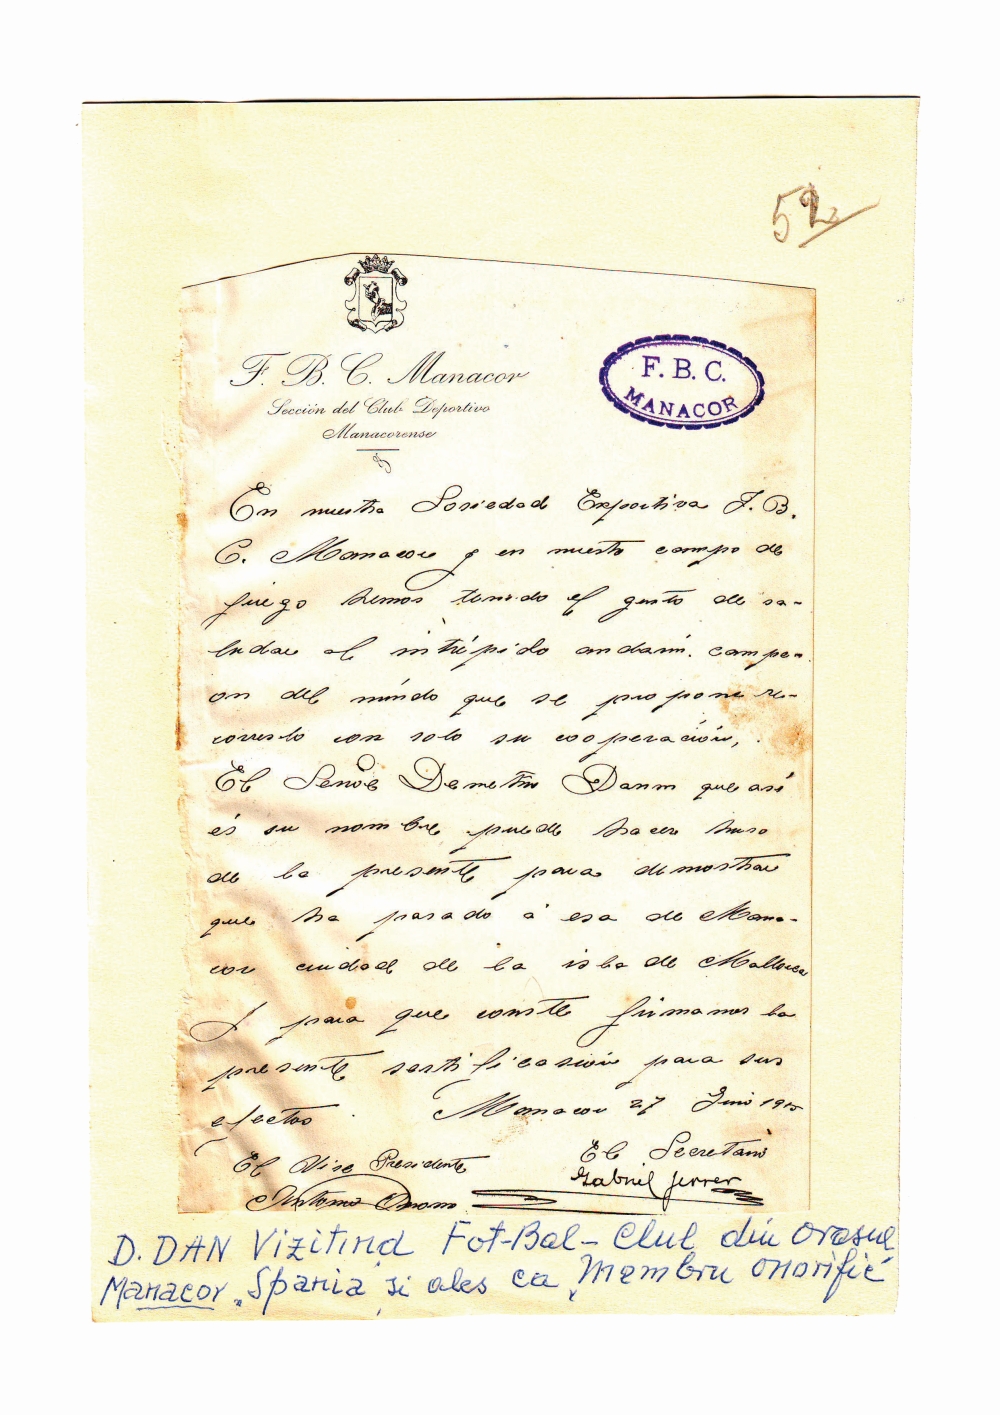 52
F. B. C. Manacor
Sección del Club Deportivo
Manacorense
F. B. C.
MANACOR
En nuestra Sosiedad Exportiva F. B.
C. Manacor y en nuesto campo de
juego hemos tenido el gusto de sa-
ludar al intrépido andarin. campe-
on del mundo que se propone re-
correrlo con solo su cooperación,
El Señor Demetrio Dann que asi
és su nombre puede hacer huso
de la presente para demostrar
que ha pasado á esa de Mana-
cor ciudad de la isla de Mallorca
Y para que conste firmamos la
presente sertificasion para sus
efectos. Manacor 27 Junio 1915
El Vise Presidente
El Secretario
Antonio
Gabriel Ferrer
D. DAN Vizitind Fot-Bal-Club din orasul
Manacor, Spania, si ales ca "Membru onorific"